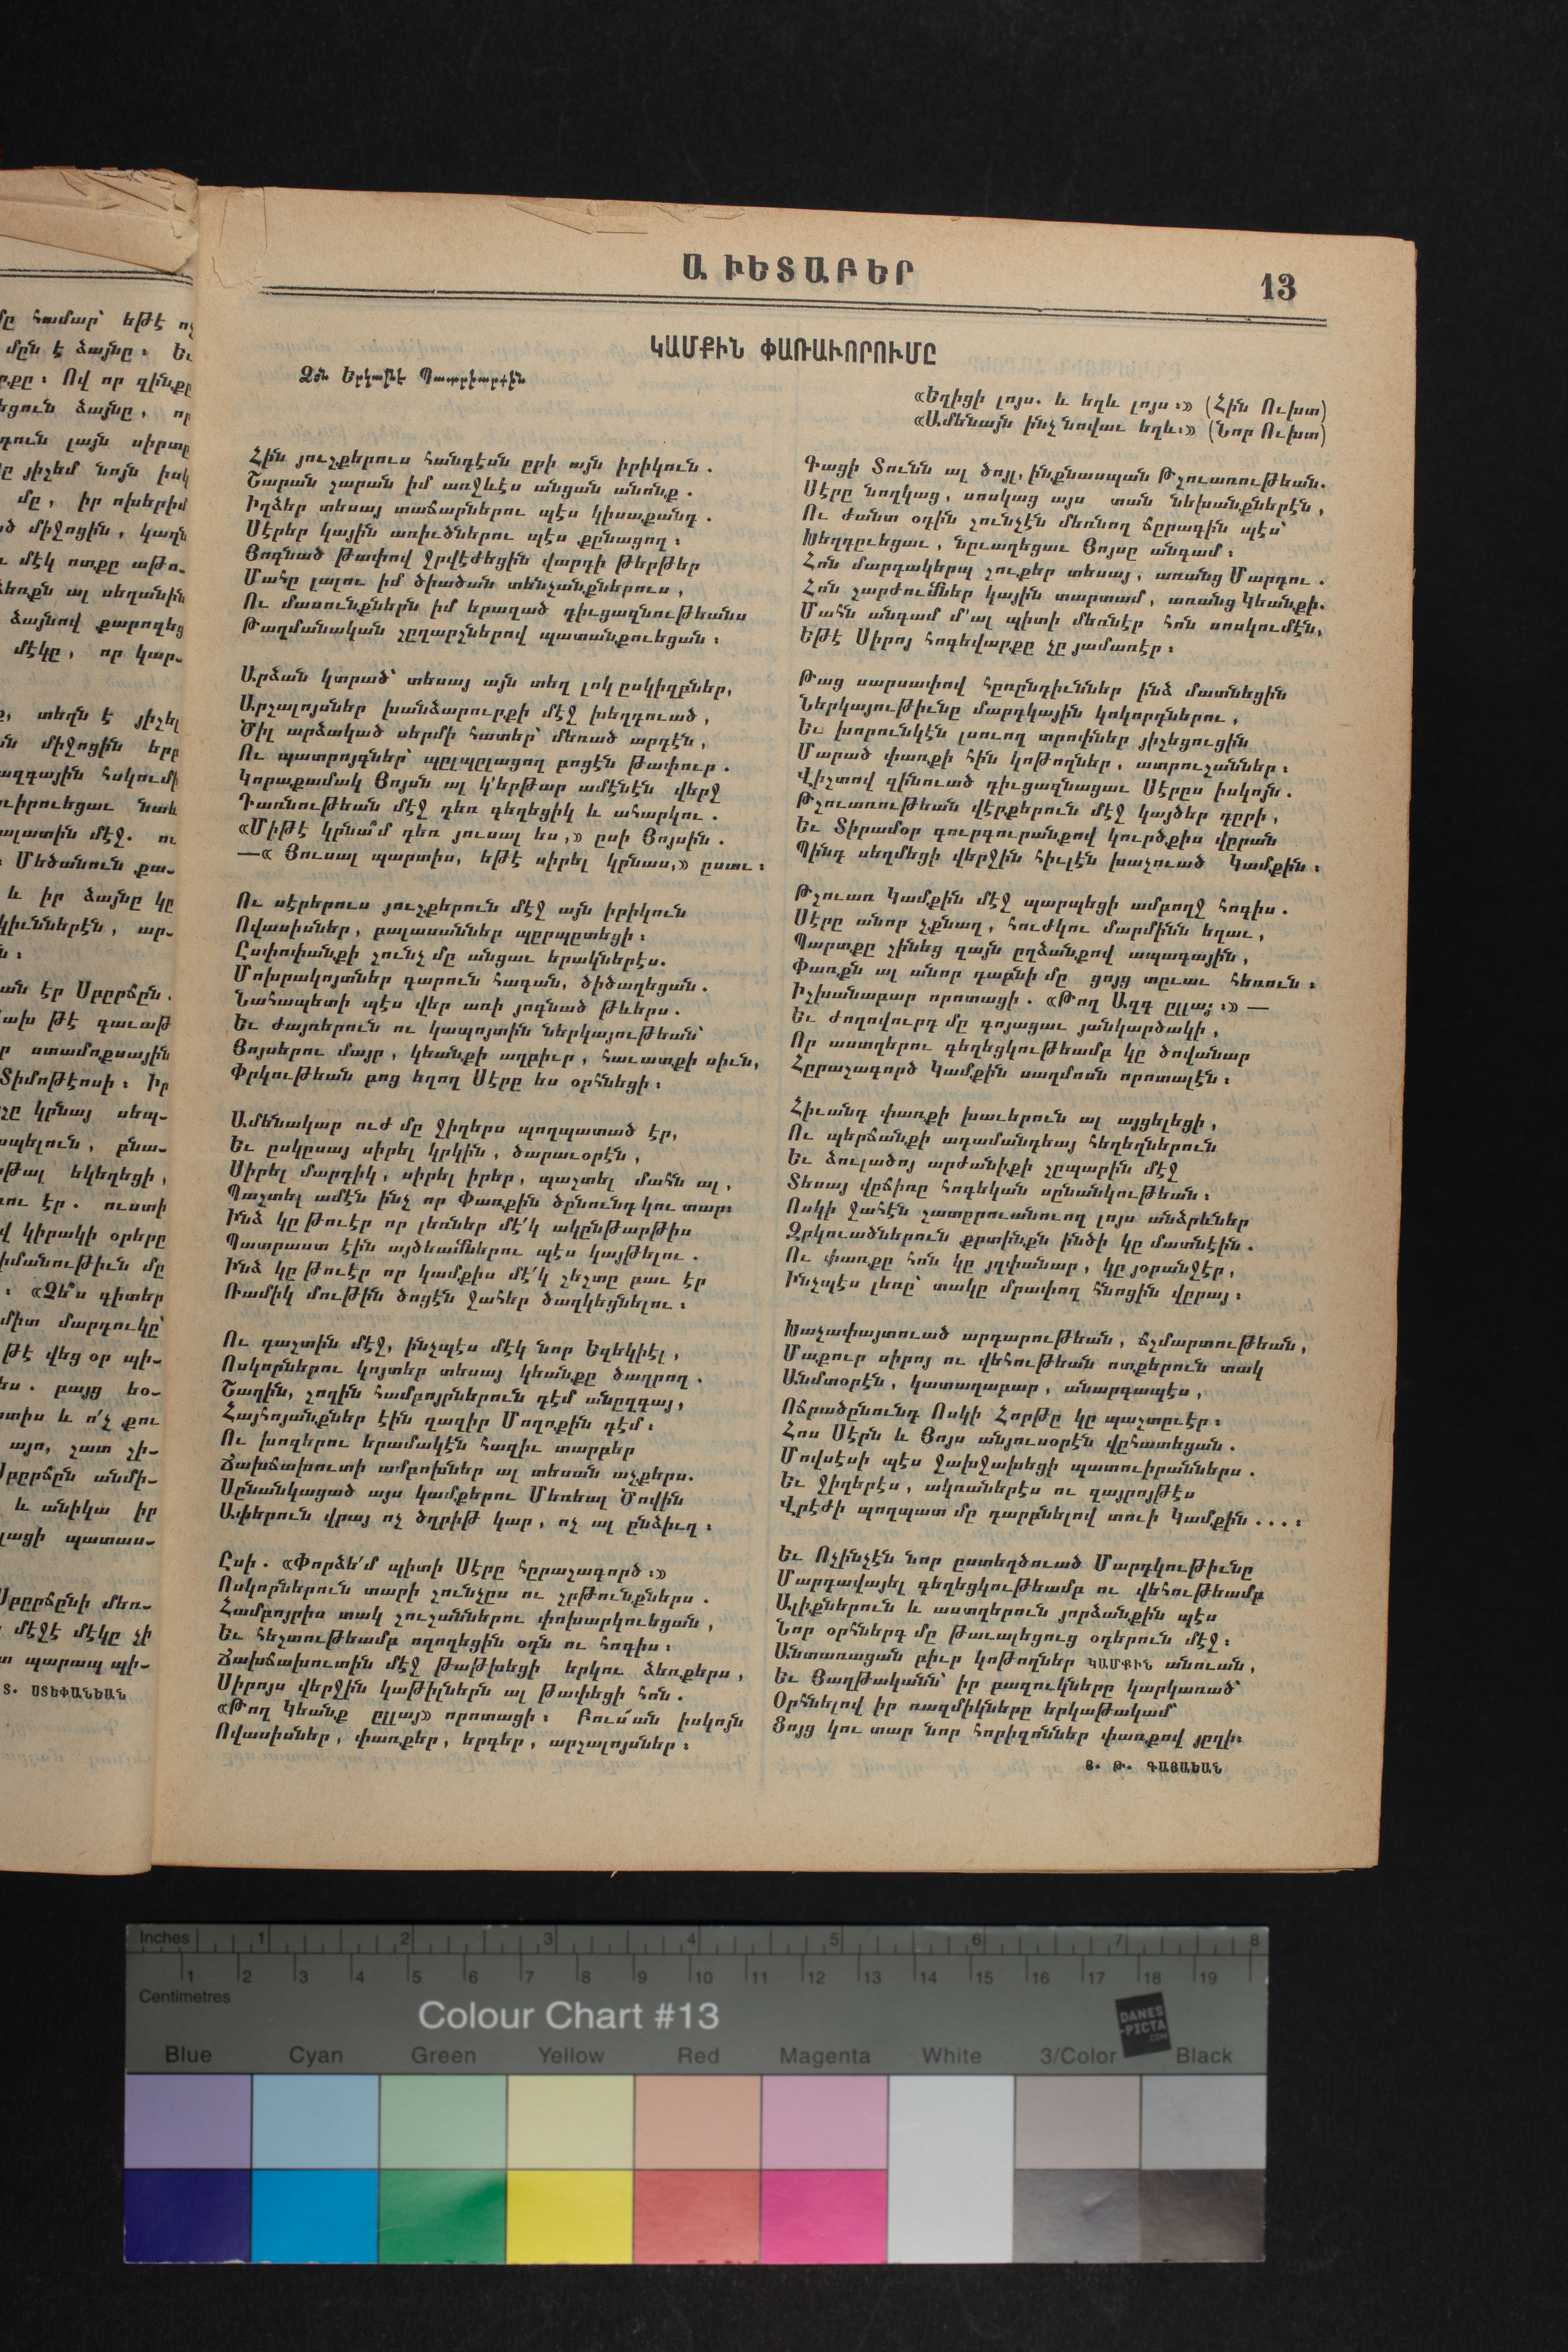 մը համար՝ եթէ ոչ
մըն է ձայնը։ Եւ
րքը։ Ով որ զինքը
եցուն ձայնը, որ
դուն լայն սիրտը
ը յիշեմ նոյն իսկ
մը, իր ոխերիմ
ծ միջոցին, կաղն
ւ մէկ ոտքը աթո-
ձեռքն ալ սեղանին
ձայնով քարոզեց
մէկը, որ կար-
ք, տեղն է յիշել
ն միջոցին երբ
ազգային հսկումի
ւիրուեցաւ նաև
ալատին մէջ. ու
։ Մեծանուն քա-
և իր ձայնը կը
կիւններէն, ար-
ն։
ան էր Սբըրճըն.
ախ թէ գաւաթ
ր ստամոքսային
Տիմոթէոսի։ Իր
չը կրնայ սեպ-
ապելուն, բնա-
րթալ եկեղեցի,
ու էր. ուստի
վ կիրակի օրերը
իմանութիւն մը
։ «Չե՞ս գիտեր
միտ մարդուկը՝
թէ վեց օր պի-
ես. բայց եօ-
տիս և ո՛չ քու
այո, շատ չի-
Սբըրճըն անմի-
և անիկա իր
լացի պատաս-
Սբըրճընի մեռ-
մէջէ մէկը չի
տ պարապ պի-
Տ. ՍՏԵՓԱՆԵԱՆ
ԱՒԵՏԱԲԵՐ
13
ԿԱՄՔԻՆ ՓԱՌԱՒՈՐՈՒՄԸ
Ձօն Երկաթէ Պատրիարքին
«Եղիցի լոյս. և եղև լոյս։» (Հին Ուխտ)
«Ամենայն ինչ նովաւ եղև։» (Նոր Ուխտ)
Հին յուշքերուս հանդէսն ըրի այն իրիկուն.
Շարան շարան իմ առջևէս անցան անոնք.
Իղձեր տեսայ տաճարներու պէս կիսաքանդ.
Սէրեր կային առիւծներու պէս քընացող։
Յոգնած թափով ջրվէժեցին վարդի թերթեր
Մահը լալու իմ ծիածան տենչանքներուս,
Ու մասունքներն իմ երազած դիւցազնութեանս
Թաղմանական շըղարշներով պատանքուեցան։
Արձան կտրած՝ տեսայ այն տեղ լոկ ըսկիզբներ,
Արշալոյսներ խանձարուրքի մէջ խեղդուած,
Ծիլ արձակած սերմի հատեր՝ մեռած արդէն,
Ու պատրոյգներ՝ պըլպըլացող բոցէն թափուր.
Կորաքամակ Յոյսն ալ կ՚երթար ամէնէն վերջ
Դառնութեան մէջ դեռ գեղեցիկ և ահարկու.
«Միթէ կրնա՞մ դեռ յուսալ ես,» ըսի Յոյսին.
—« Յուսալ պարտիս, եթէ սիրել կրնաս,» ըսաւ։
Ու սէրերուս յուշքերուն մէջ այն իրիկուն
Ովասիսներ, բալասաններ պըրպըտեցի։
Ըսփոփանքի շունչ մը անցաւ երակներէս.
Մոխրակոյտներ դարուն հագան, ծիծաղեցան.
Նահապետի պէս վեր առի յոգնած թևերս.
Եւ ժայռերուն ու կապոյտին ներկայութեան՝
Յոյսերու մայր, կեանքի աղբիւր, հաւատքի սիւն,
Փրկութեան բոց եղող Սէրը ես օրհնեցի։
Ամենակար ուժ մը ջիղերս պողպատած էր,
Եւ ըսկըսայ սիրել կրկին, ծարաւօրէն,
Սիրել մարդիկ, սիրել իրեր, պաշտել մահն ալ,
Պաշտել ամէն ինչ որ Փառքին ծընունդ կու տար։
Ինձ կը թուէր որ լեռներ մէ՛կ ակընթարթիս
Պատրաստ էին այծեամներու պէս կայթելու.
Ինձ կը թուէր որ կամքիս մէ՛կ շեշտը բաւ էր
Ռամիկ մութին ծոցէն ջահեր ծաղկեցնելու։
Ու դաշտին մէջ, ինչպէս մէկ նոր Եզեկիէլ,
Ոսկորներու կոյտեր տեսայ կեանքը ծաղրող.
Շաղին, շողին համբոյրներուն դէմ անըզգայ,
Հայհոյանքներ էին զազիր Մոլոքին դէմ։
Ու խոզերու երամակէն հազիւ տարբեր
Ճախճախուտի ամբոխներ ալ տեսան աչքերս.
Սընանկացած այս կամքերու Մեռեալ Ծովին
Ափերուն վրայ ոչ ծղրիթ կար, ոչ ալ ընձիւղ։
Ըսի. «Փորձե՛մ պիտի Սէրը հըրաշագործ։»
Ոսկորներուն տարի շունչըս ու շրթունքներս.
Համբոյրիս տակ շուշաններու փոխարկուեցան,
Եւ հեշտութեամբ ողողեցին օդն ու հոգիս։
Ճախճախուտին մէջ թաթխեցի երկու ձեռքերս,
Սիրոյս վերջին կաթիլներն ալ թափեցի հոն.
«Թող Կեանք ըլլայ» որոտացի։ Բուսան իսկոյն
Ովասիսներ, փառքեր, երգեր, արշալոյսներ։
Գացի Տունն ալ ծոյլ, ինքնասպան Թշուառութեան.
Սէրը նողկաց, սոսկաց այս տան նեխանքներէն,
Ու ժանտ օդին շունչէն մեռնող ճըրագին պէս՝
Խեղդըւեցաւ, նըւաղեցաւ Յոյսը անգամ։
Հոն մարդակերպ շուքեր տեսայ, առանց Մարդու.
Հոն շարժումներ կային տարտամ, առանց Կեանքի.
Մահն անգամ մ՚ալ պիտի մեռնէր հոն սոսկումէն,
Եթէ Սիրոյ հոգեվարքը չը յամառէր։
Թաց սարսափով հըռընդիւններ ինձ մատնեցին
Ներկայութիւնը մարդկային կոկորդներու,
Եւ խորունկէն լսուող տրոփներ յիշեցուցին
Մարած փառքի հին կոթողներ, ատրուշաններ։
Վիշտով զինուած դիւցազնացաւ Սէրըս իսկոյն.
Թշուառութեան վէրքերուն մէջ կայծեր դըրի,
Եւ Տիրամօր գուրգուրանքով կուրծքիս վըրան
Պինդ սեղմեցի վերջին հիւլէն խաչուած Կամքին։
Թշուառ Կամքին մէջ պարպեցի ամբողջ հոգիս.
Սէրը անոր շքնաղ, հուժկու մարմինն եղաւ,
Պարտքը շինեց զայն ըղձանքով ապագային,
Փառքն ալ անոր դափնի մը ցոյց տըւաւ հեռուն։
Իշխանաբար որոտացի. «Թող Ազգ ըլլայ։» —
Եւ ժողովուրդ մը գոյացաւ յանկարծակի,
Որ աստղերու գեղեցկութեամբ կը ծովանար
Հըրաշագործ Կամքին սաղմոսն որոտալէն։
Հիւանդ փառքի խաւերուն ալ այցելեցի,
Ու պերճանքի ադամանդեայ հեղեղներուն
Եւ ձուլածոյ արժանիքի շըպարին մէջ
Տեսայ վըճիռը հոգեկան սընանկութեան։
Ոսկի ջահէն շատըրուանուող լոյս անձրևներ
Զրկուածներուն քրտինքն ինծի կը մատնէին.
Ու փառքը հոն կը յղփանար, կը յօրանջէր,
Ինչպէս լեռը՝ տակը մրափող հնոցին վըրայ։
Խաչափայտուած արդարութեան, ճշմարտութեան,
Մաքուր սիրոյ ու վեհութեան ոտքերուն տակ
Անմտօրէն, կատաղաբար, անարգապէս,
Ոճրածընունդ Ոսկի Հորթը կը պաշտըւէր։
Հոս Սէրն և Յոյս անյուսօրէն վըհատեցան.
Մովսէսի պէս ջախջախեցի պատուիրաններս.
Եւ ջիղերէս, ակռաներէս ու զայրոյթէս
Վրէժի պողպատ մը դարբնելով տուի Կամքին....։
Եւ Ոչինչէն նոր ըստեղծուած Մարդկութիւնը
Մարդավայել գեղեցկութեամբ ու վեհութեամբ
Ալիքներուն և աստղերուն յորձանքին պէս
Նոր օրհներգ մը թաւալեցուց օդերուն մէջ։
Անտառացան բիւր կոթողներ ԿԱՄՔԻՆ անուան,
Եւ Յաղթականն՝ իր բազուկները կարկառած՝
Օրհնելով իր ռազմիկները երկաթակամ՝
Ցոյց կու տար նոր հորիզոններ փառքով յըղի։
Յ. Թ. ԳԱՅԱՆԵԱՆ
Inches 1 2 3 4 5 6 7 8
1 2 3 4 5 6 7 8 9 10 11 12 13 14 15 16 17 18 19
Centimetres
Colour Chart #13
DANES
-PICTA
.COM
Blue Cyan Green Yellow Red Magenta White 3/Color Black